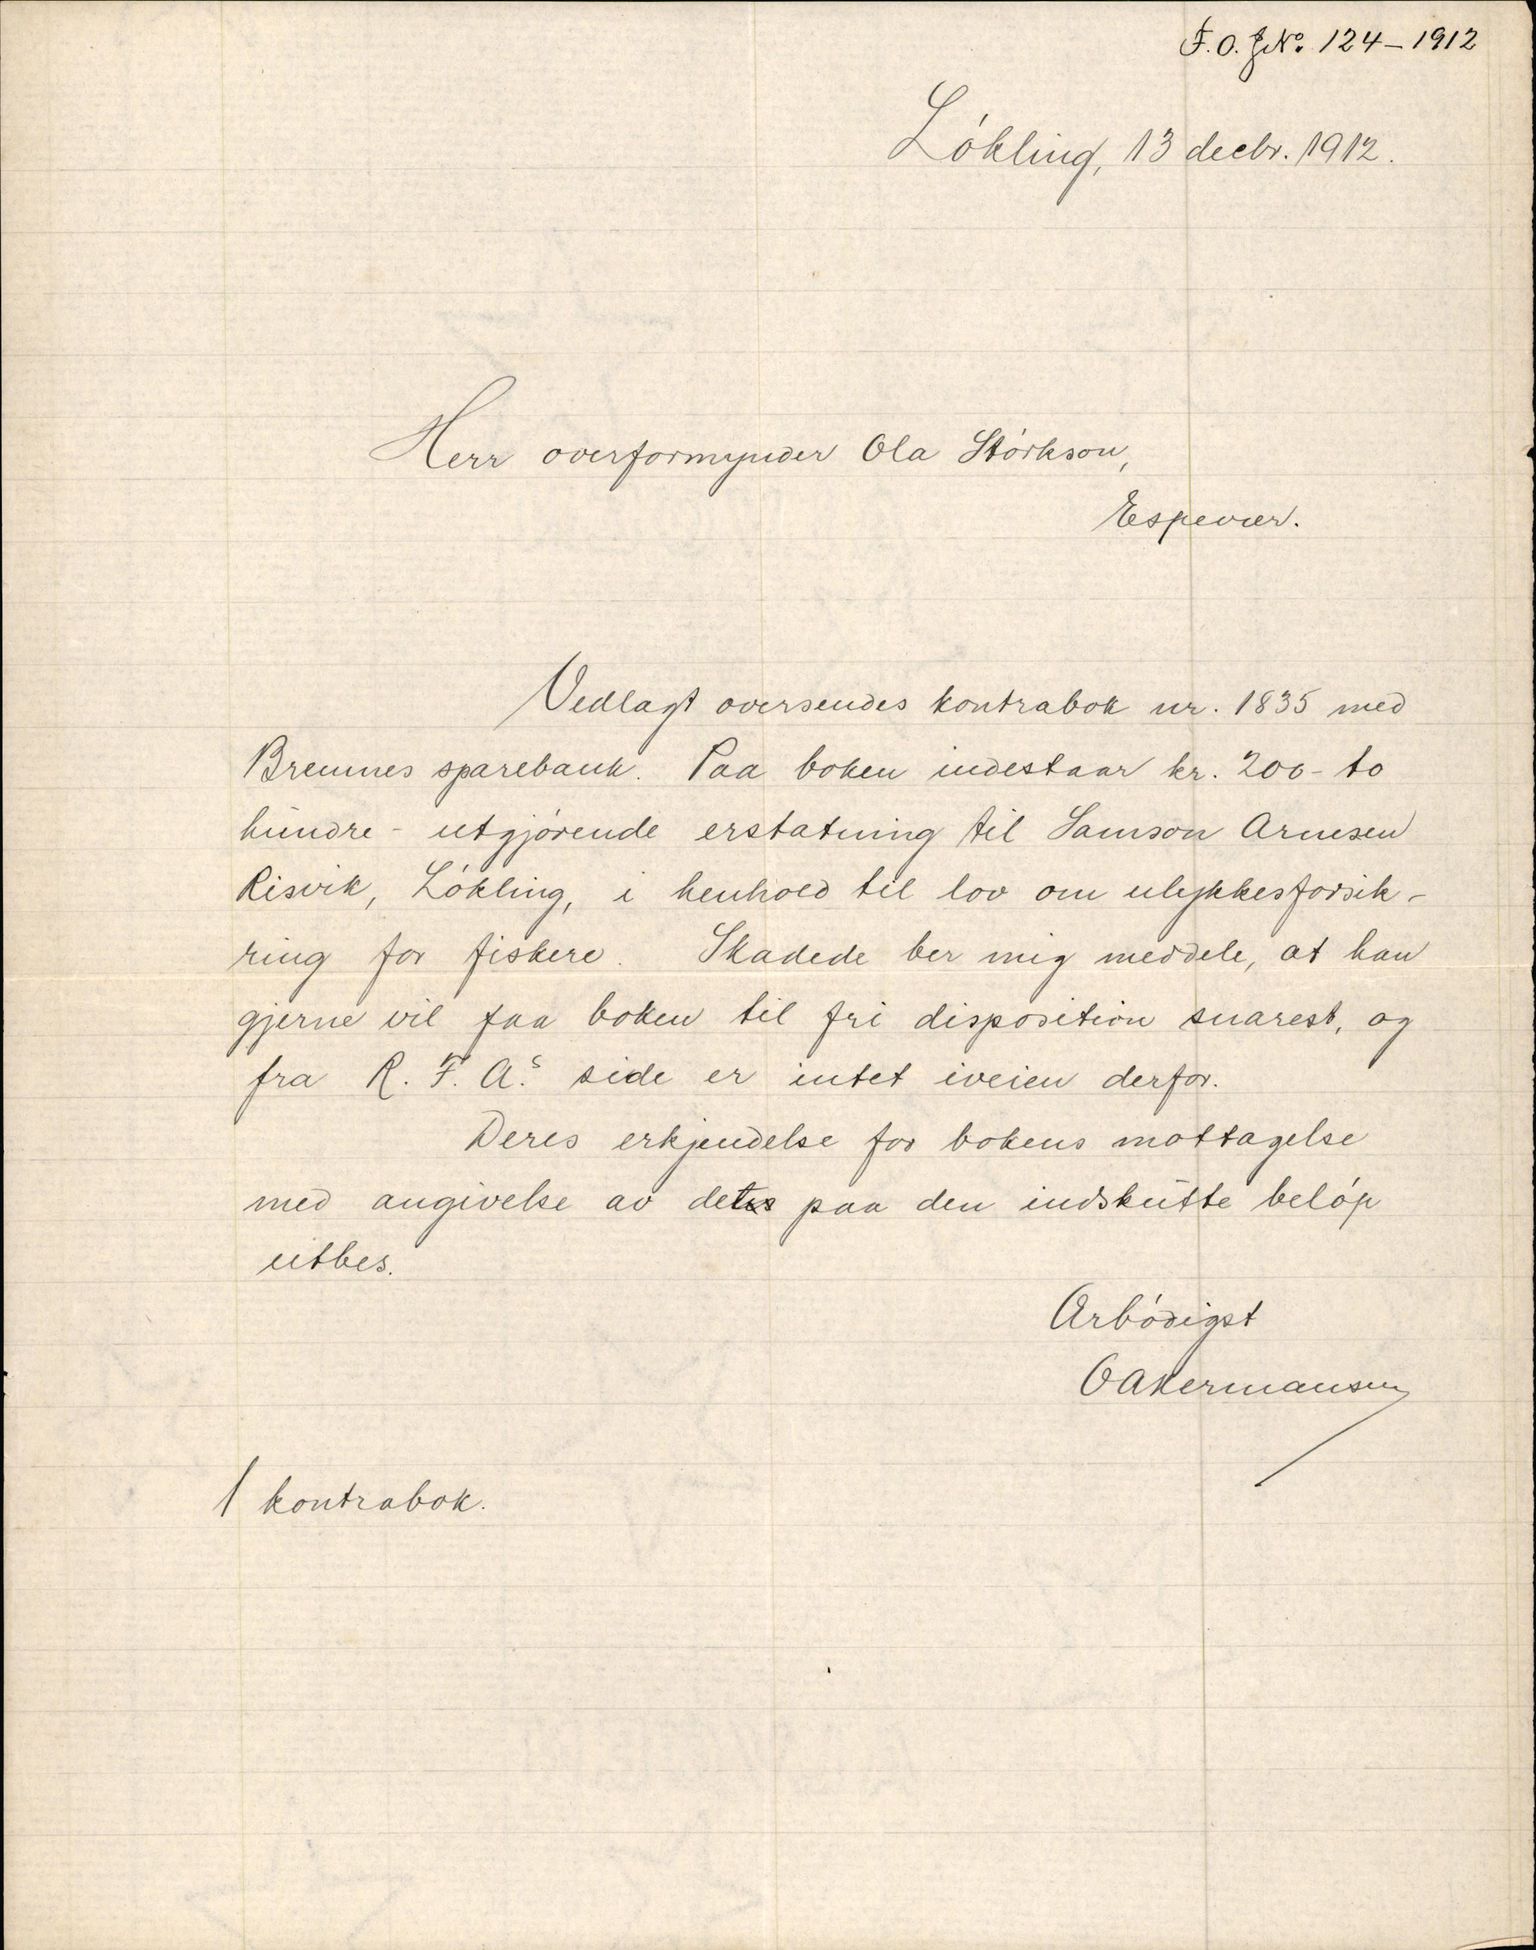 F. O. J.No. 124 – 1912
Lökling, 13 decbr. 1912.
Herr overformynder Ola Störkson,
Espevær.
Vedlagt oversendes kontrabok nr. 1835 med
Bremnes sparebank. Paa boken indestaar kr. 200 - to
hundre - utgjörende erstatning til Samson Arnesen
Risvik, Lökling, i henhold til lov om ulykkesforsik-
ring for fiskere. Skadede ber mig meddele, at han
gjerne vil faa boken til fri disposition snarest, og
fra R. F. A.s side er intet iveien derfor.
Deres erkjendelse for bokens mottagelse
med angivelse av det paa den indskutte belöp
utbes.
Ærbödigst
O A Hermansen
1 kontrabok.